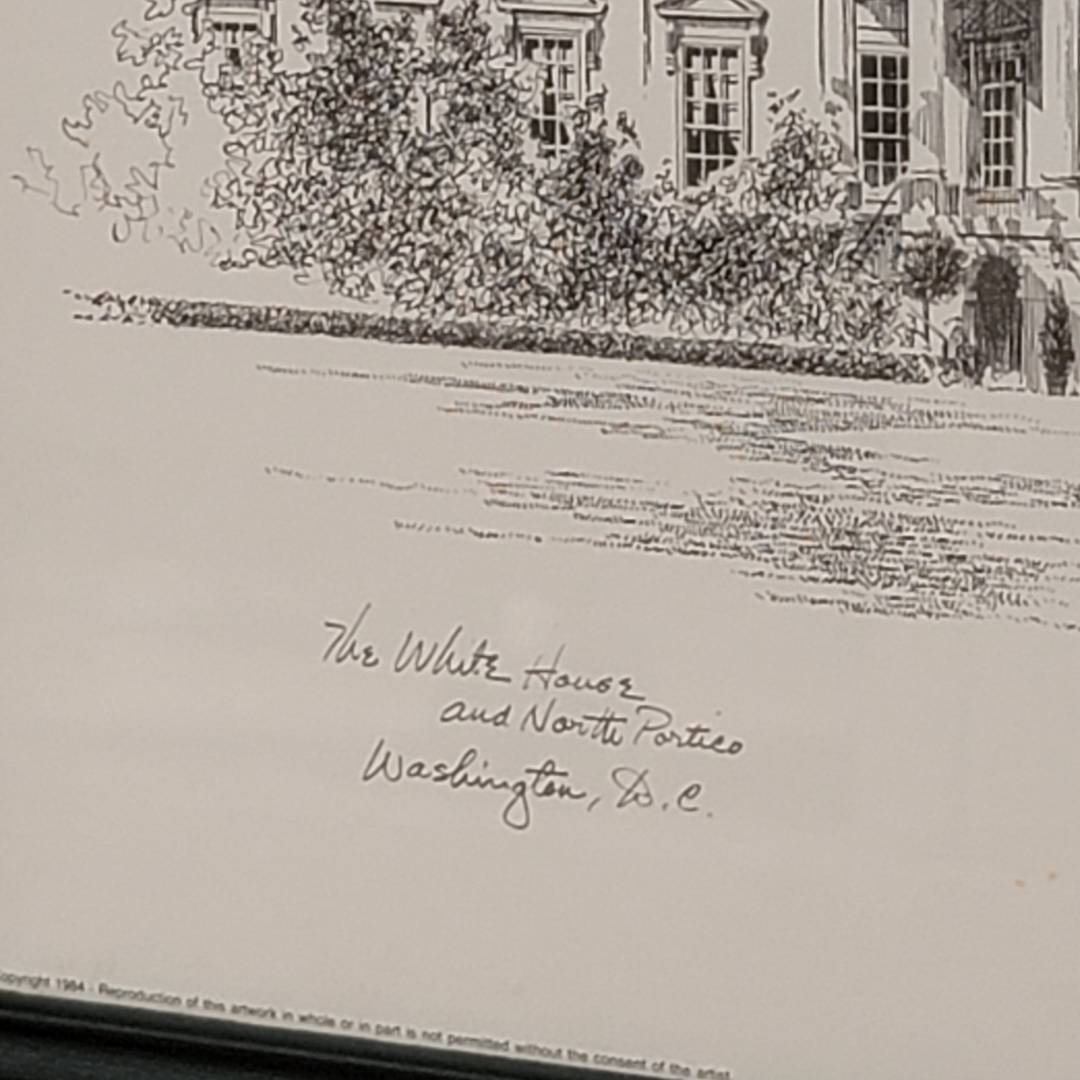 The White House
and North Portico
Washington, D.C.
Copyright 1984 - Reproduction of this artwork in whole or in part is not permitted without the consent of the artist